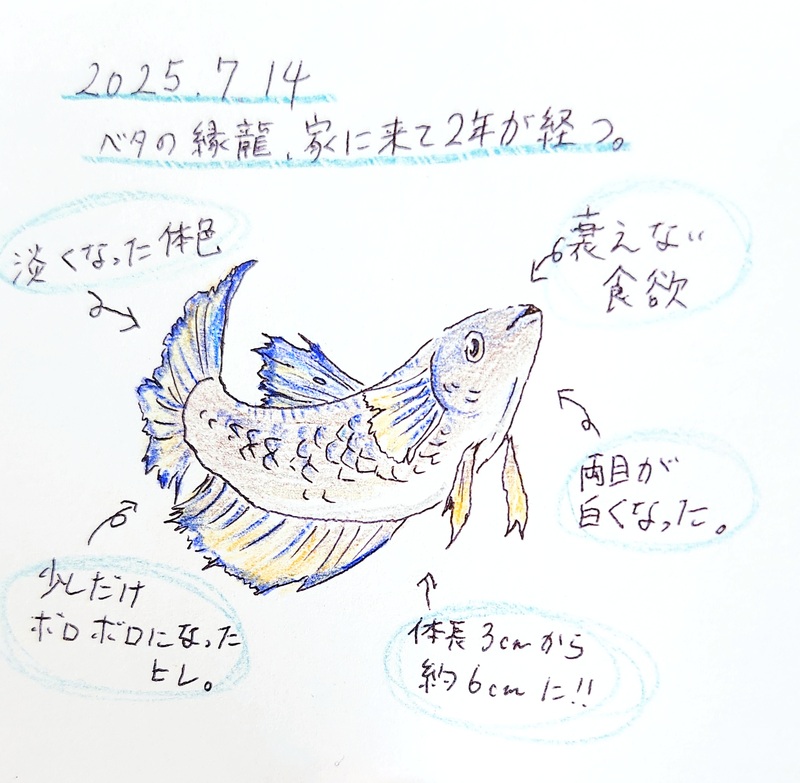 2025.7.14
ベタの縁龍、家に来て2年が経つ。
淡くなった体色
衰えない
食欲
両目が
白くなった。
少しだけ
ボロボロになった
ヒレ。
体長3cmから
約6cmに!!